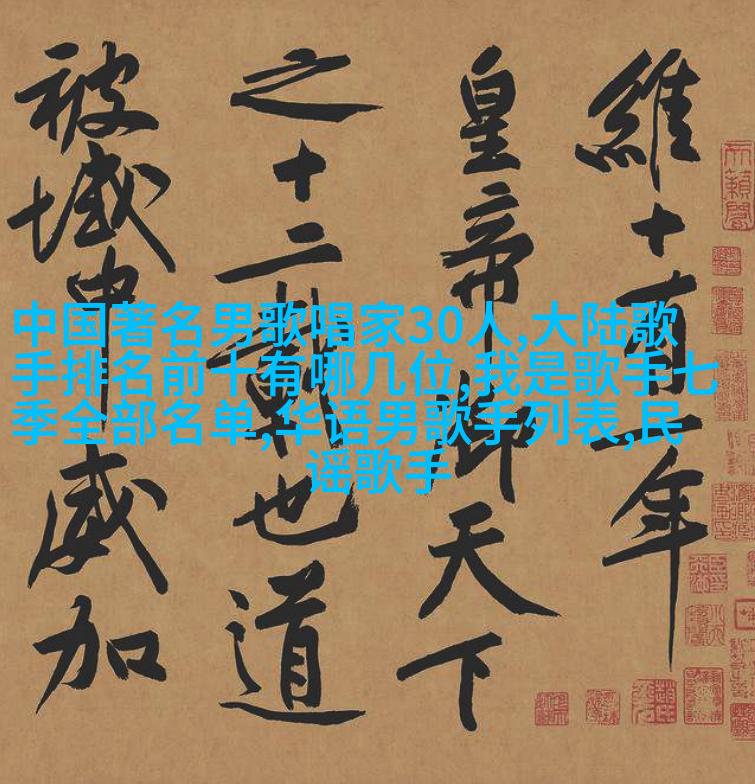 維十有一年
皇帝御天下
之十二載也道
被域中威加
中国著名男歌唱家30人,大陆歌
手排名前十有哪几位,我是歌手七
季全部名单,华语男歌手列表,民
谣歌手